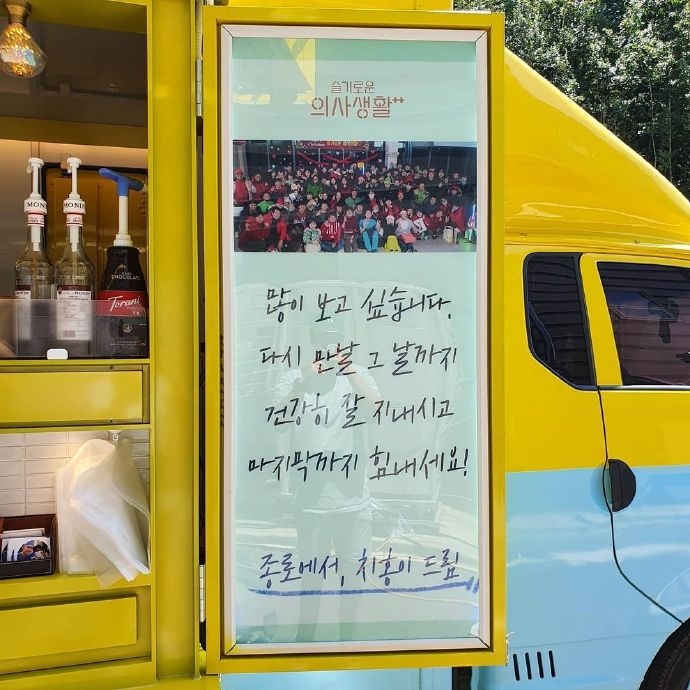 슬기로운
의사생활**
많이 보고 싶습니다.
다시 만날 그 날까지
건강히 잘 지내시고
마지막까지 힘내세요!
종로에서, 치홍이 드림
MONIN
MONIN
DARK
CHOCOLATE
Torani